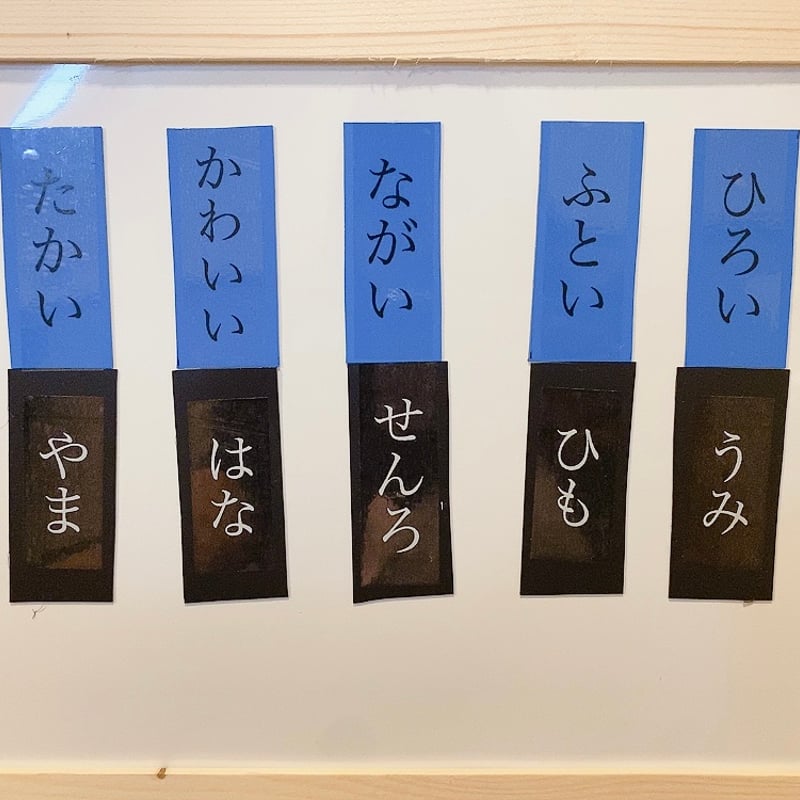 ひろい
うみ
ふとい
ひも
ながい
せんろ
かわいい
はな
たかい
やま